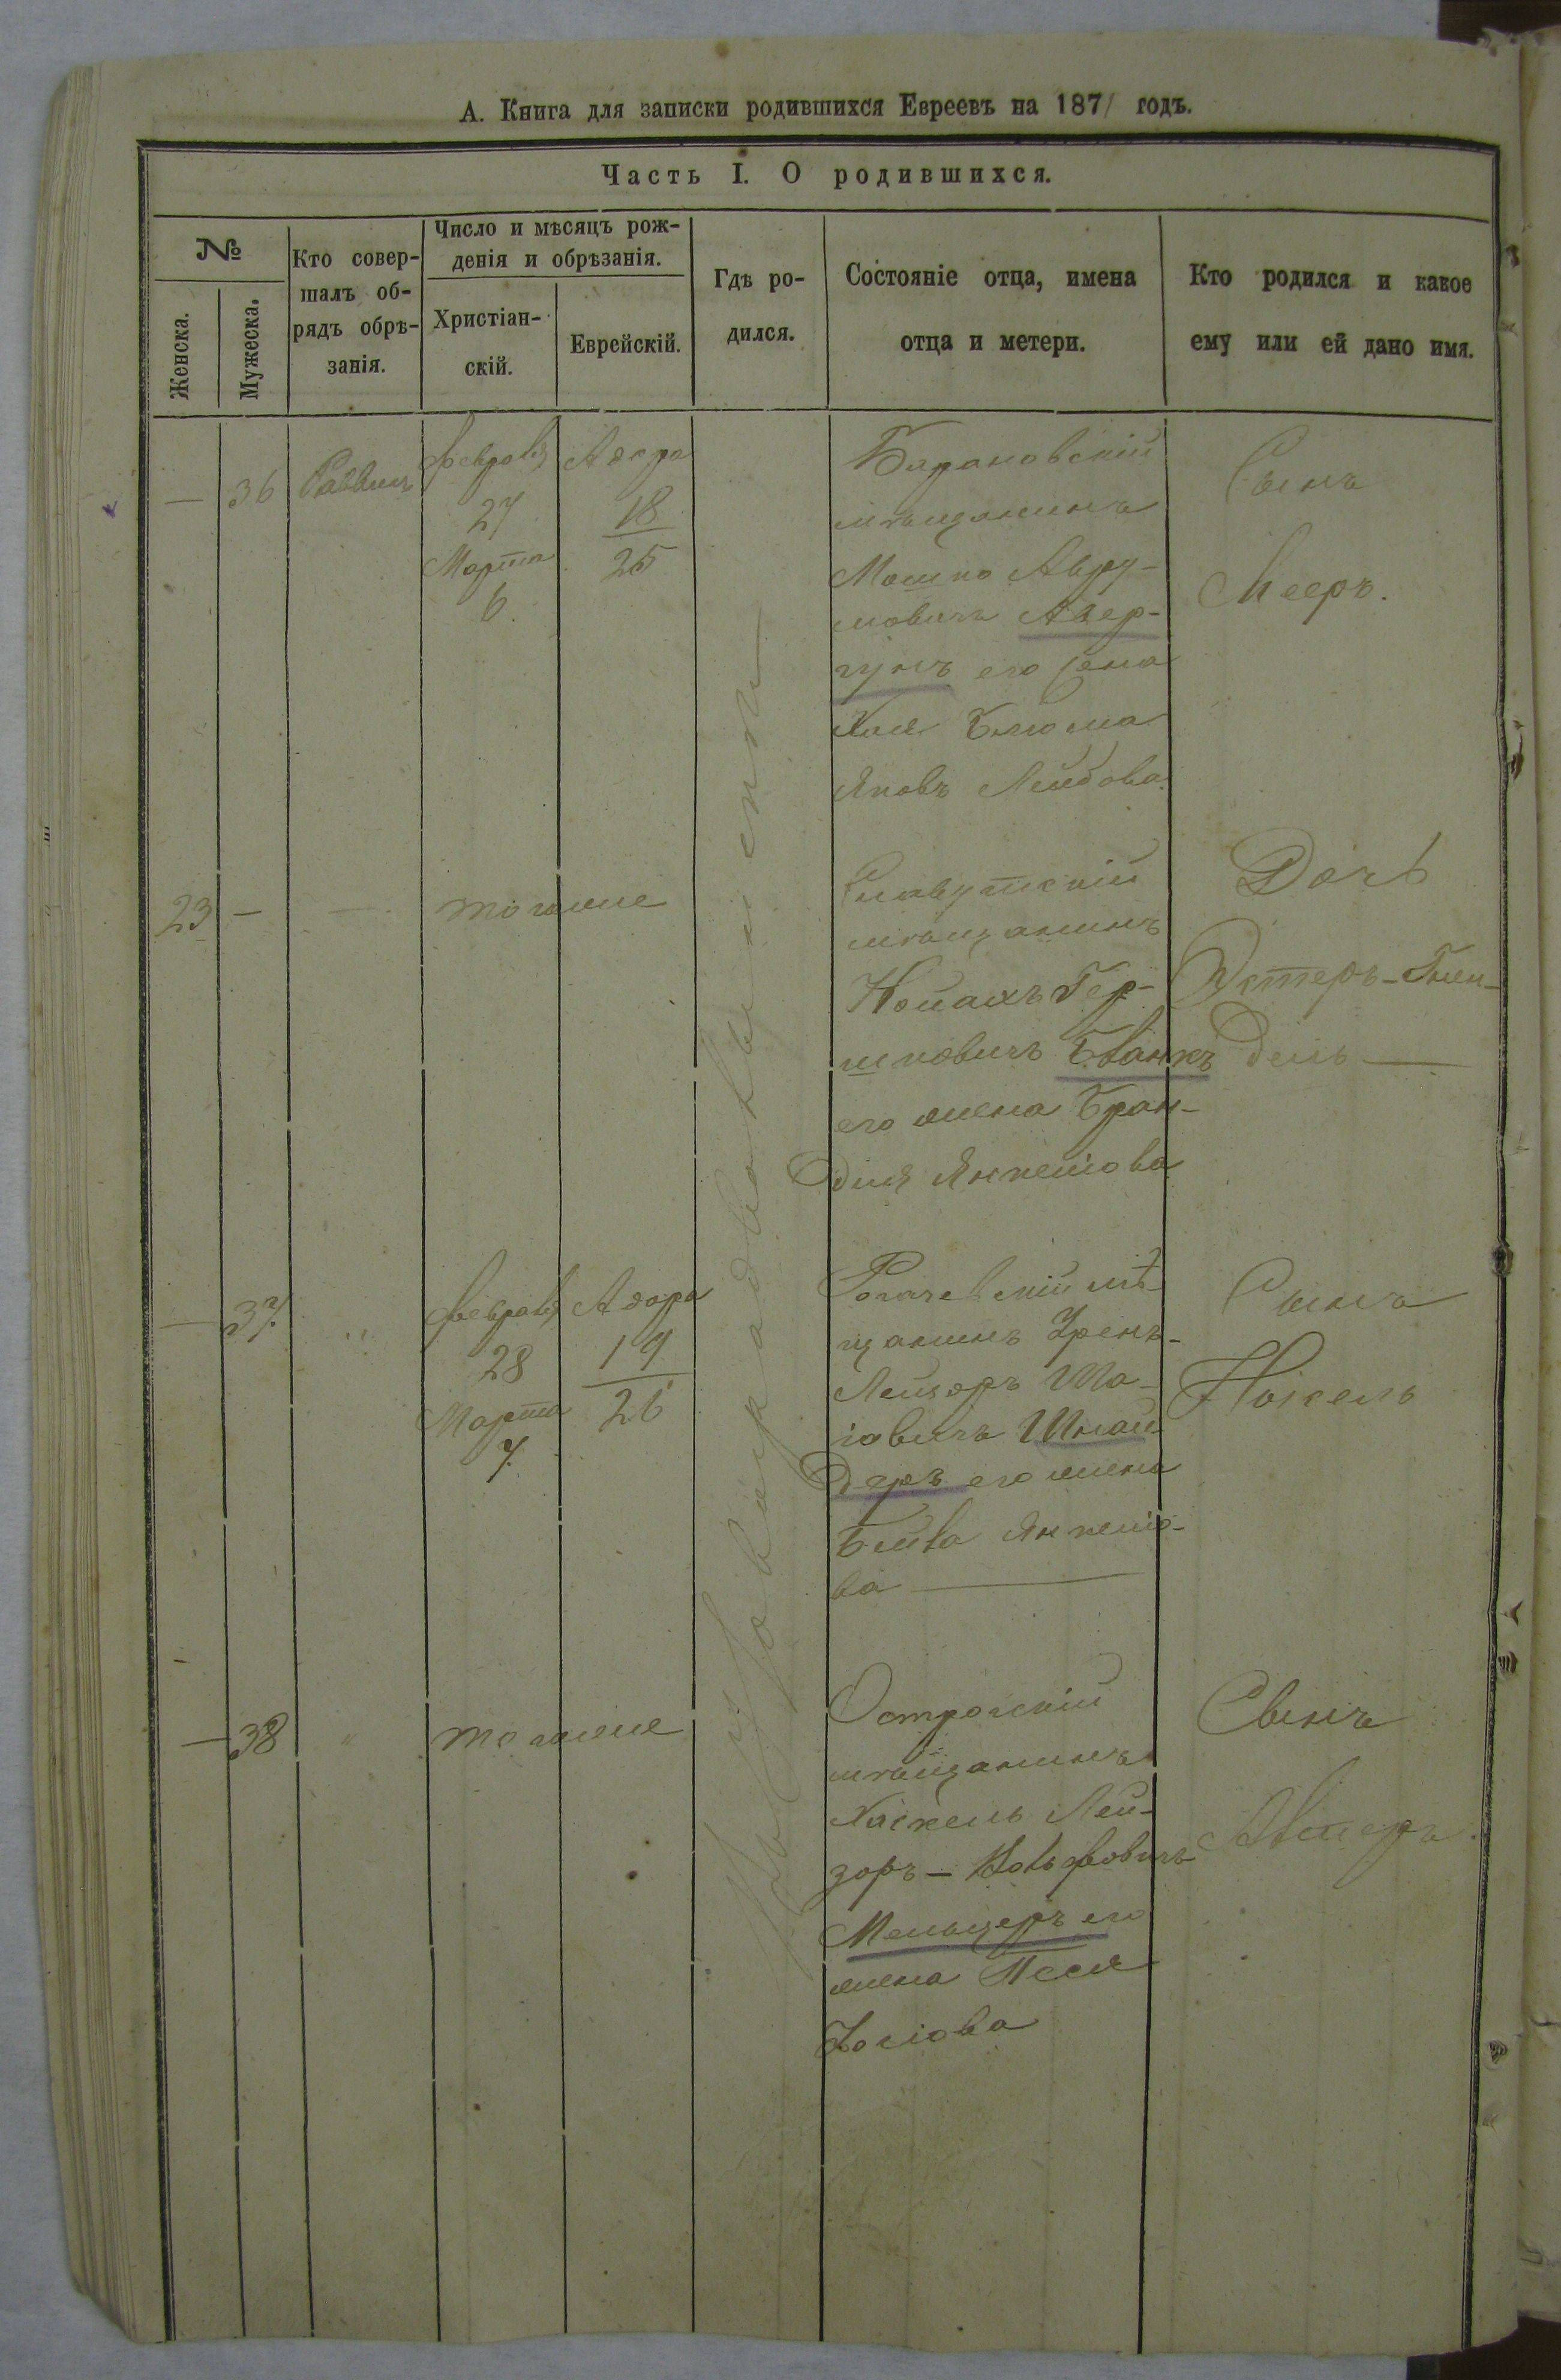 А. Книга для записки родившихся Евреевъ на 1871 годъ.
Часть I. О родившихся.
№
Женска.
Мужеска.
Кто совер-
шалъ об-
рядъ обрѣ-
занія.
Число и мѣсяцъ рож-
денія и обрѣзанія.
Христіан-
скій.
Еврейскій.
Гдѣ ро-
дился.
Состояніе отца, имена
отца и метери.
Кто родился и какое
ему или ей дано имя.
—
36
Раввинъ
Февраля
27
Марта
6
Адара
18
25
Барановскій
мѣщанинъ
Мошко Авру-
мовичъ
его жена
Хая Блюма
Яновъ Лейбова
Сынъ
Мееръ.
23
—
—
тогоже
Славутскій
мѣщанинъ
Гер-
шковичъ Бланкъ
его жена Бран-
для Янкелiова
Дочь
Эстеръ-Гнен-
дель
—
37.
"
Февраля
28
Марта
7.
Адара
19
26
Рогачевскій мѣ-
щанинъ
Лейзоръ Ша-
іовичъ Шнай
деръ его жена
Бейла Янкеліо-
ва
Сынъ
—
38
"
тогоже
Острожскій
мѣщанинъ
Хаскель Лей-
зоръ — Вольфовичъ
Мельцеръ его
жена Песя
Іосіова
Сынъ